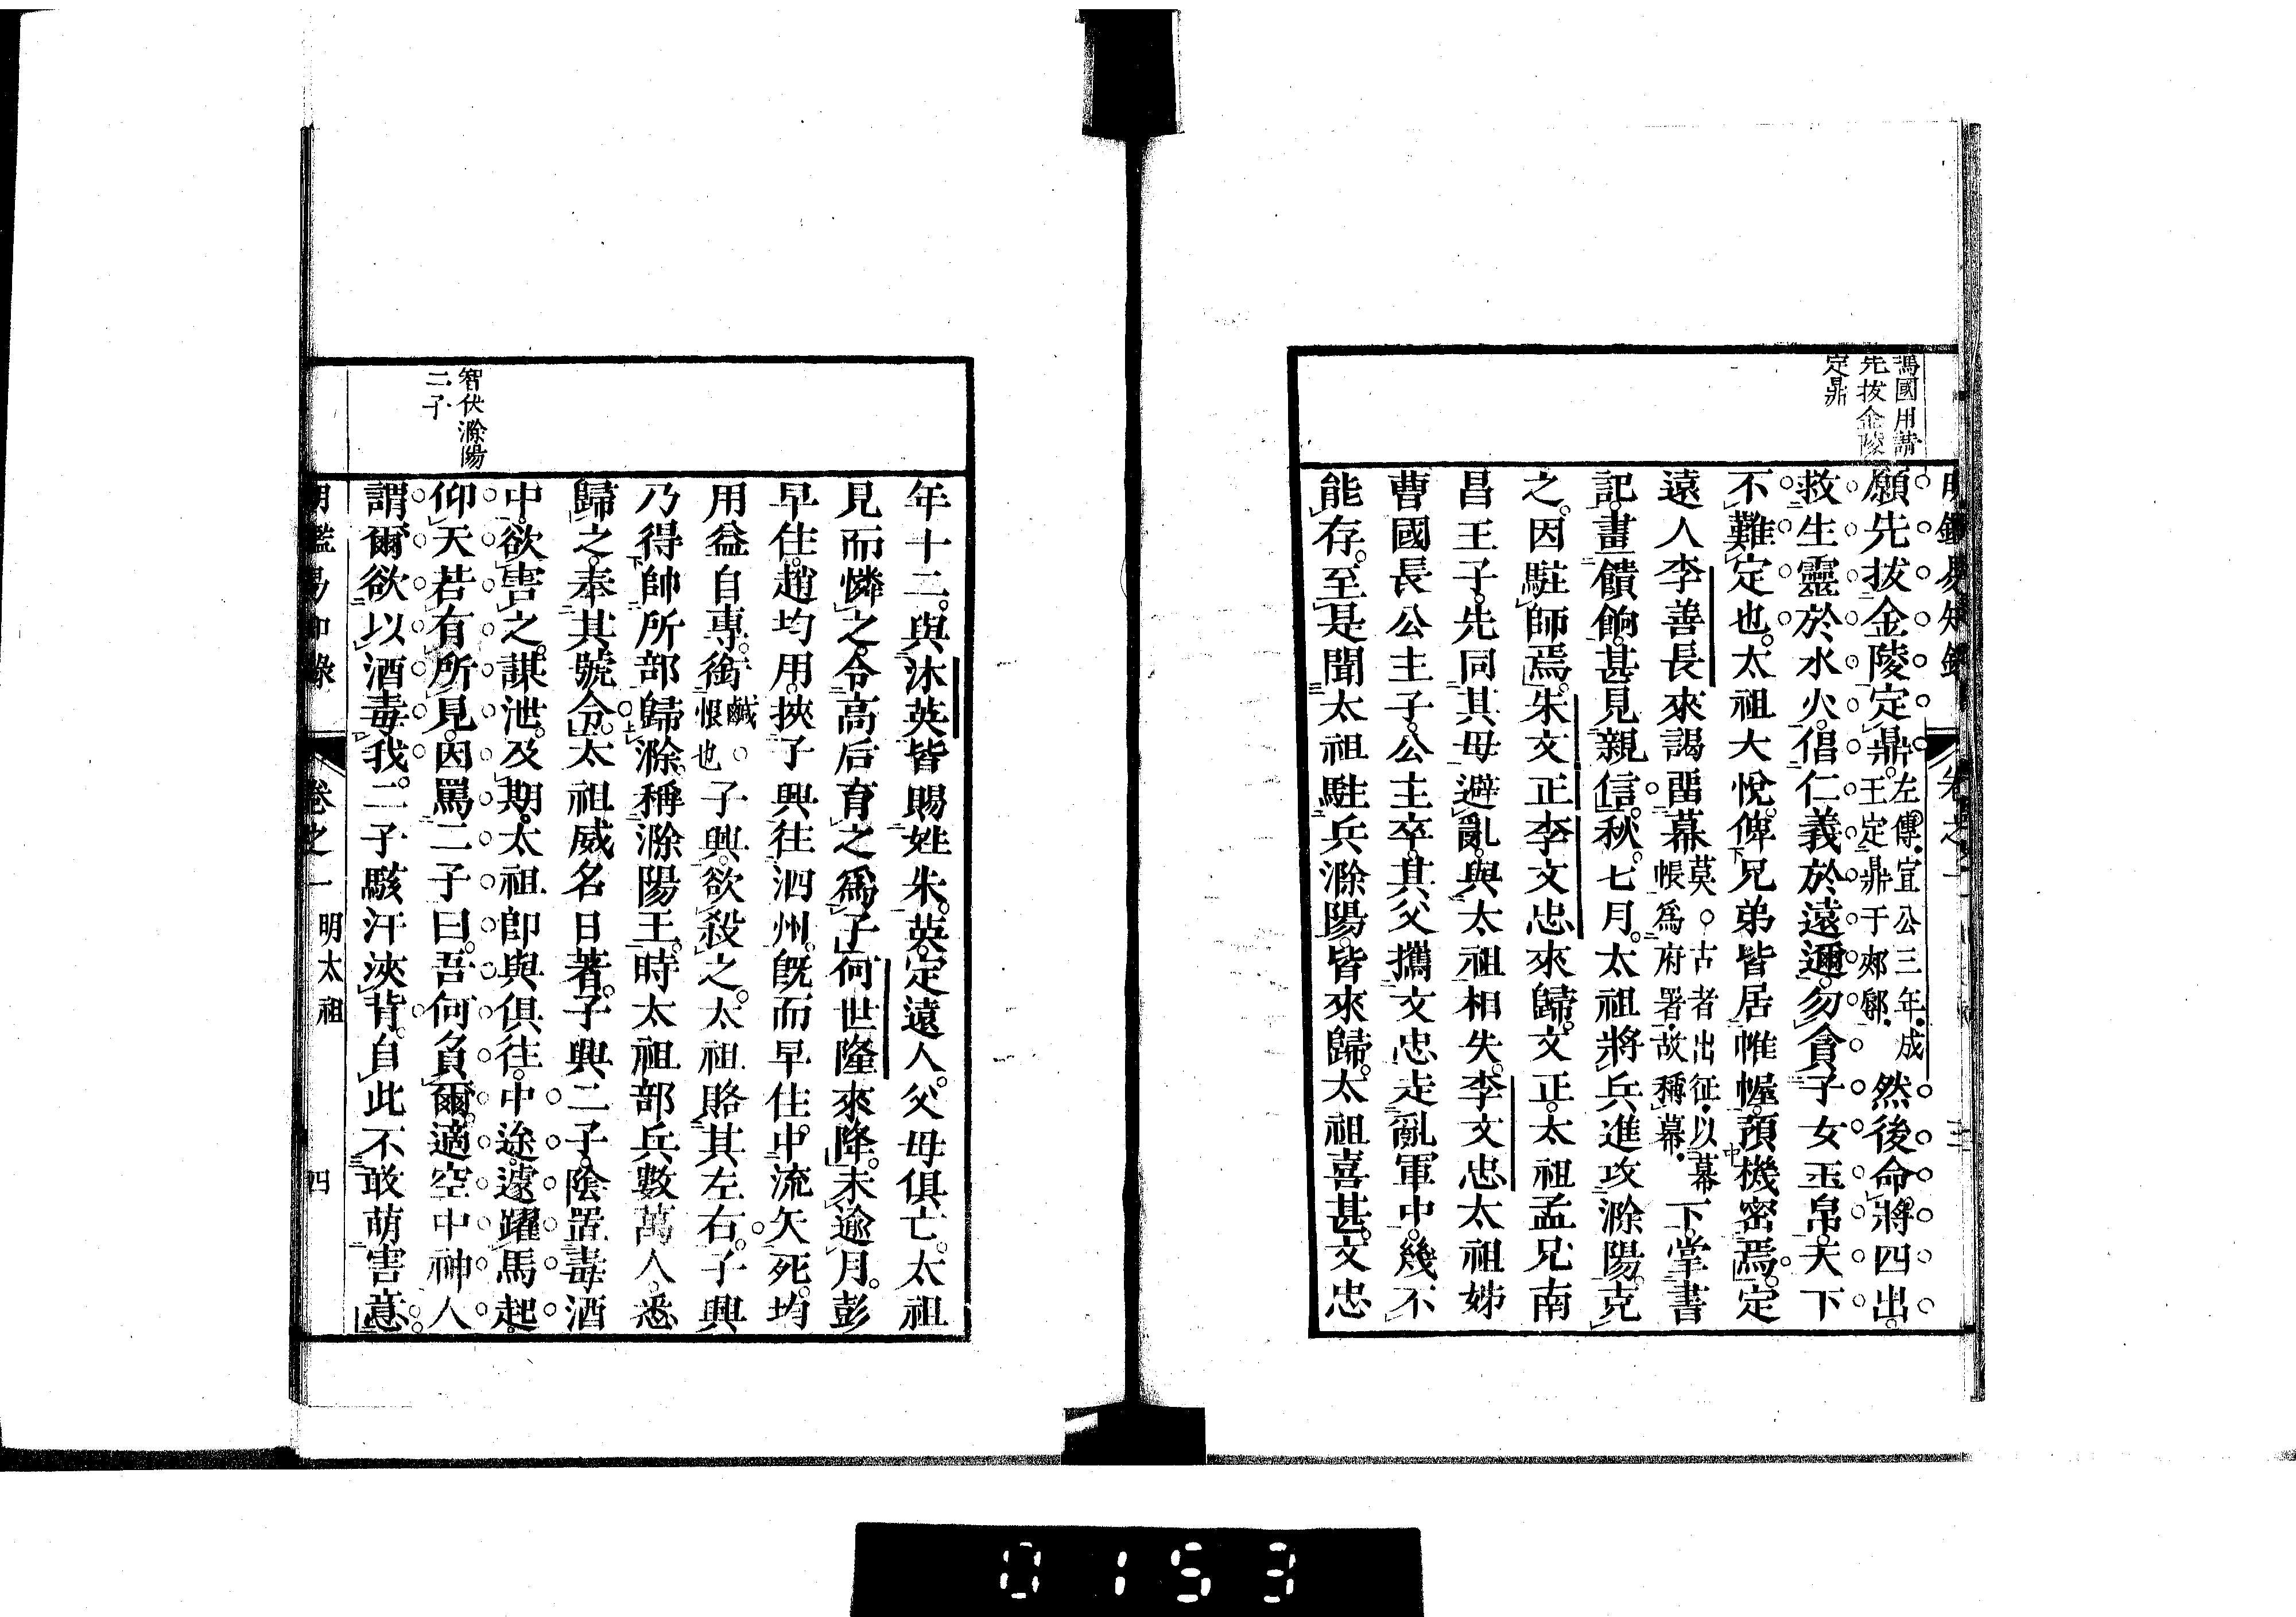 明鑑易知錄 卷之一 三
馮國用請
先拔金陵
定鼎
願先拔金陵定鼎。左傳。宣公三年。成王定鼎于郟鄏。然後命將四出。
救生靈於水火。倡仁義於遠邇。勿貪子女玉帛。天下
不難定也。太祖大悅。俾兄弟皆居帷幄。預機密焉。定
遠人李善長來謁。畱幕莫。古者出征。以幕帳爲府署。故稱幕。下。掌書
記。畫饋餉。甚見親信。秋七月。太祖將兵進攻滁陽。克
之。因駐師焉。朱文正李文忠來歸。文正。太祖孟兄南
昌王子。先同其母避亂。與太祖相失。李文忠太祖姊
曹國長公主子。公主卒。其父攜文忠走亂軍中。幾不
能存。至是聞太祖駐兵滁陽。皆來歸。太祖喜甚。文忠
年十二。與沐英皆賜姓朱。英。定遠人。父母俱亡。太祖
見而憐之。令高后育之爲子。何世隆來降。未逾月。彭
早住。趙均用。挾子興往泗州。旣而早住。中流矢死。均
用益自專。銜鹹。恨也。子興。欲殺之。太祖賂其左右。子興
乃得帥所部歸滁。稱滁陽王。時太祖部兵數萬人。悉
歸之。奉其號令。太祖威名日著。子興二子。陰置毒酒
中。欲害之。謀泄。及期。太祖卽與俱往。中途。遽躍馬起。
仰天若有所見。因罵二子曰。吾何負爾。適空中神人
謂爾欲以酒毒我。二子駭汗浹背。自此不敢萌害意。
智伏滁陽
二子
明鑑易知錄 卷之一 明太祖 四
0153